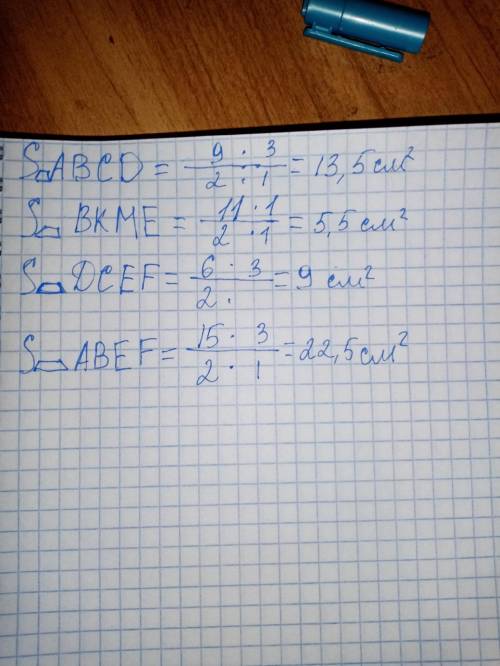 S▱ABCD = 9 · 3 / 2 · 1 = 13,5 см²
S▱ BKME = 11 · 1 / 2 · 1 = 5,5 см²
S▱ DCEF = 6 · 3 / 2 · = 9 см²
S▱ ABEF = 15 · 3 / 2 · 1 = 22,5 см²